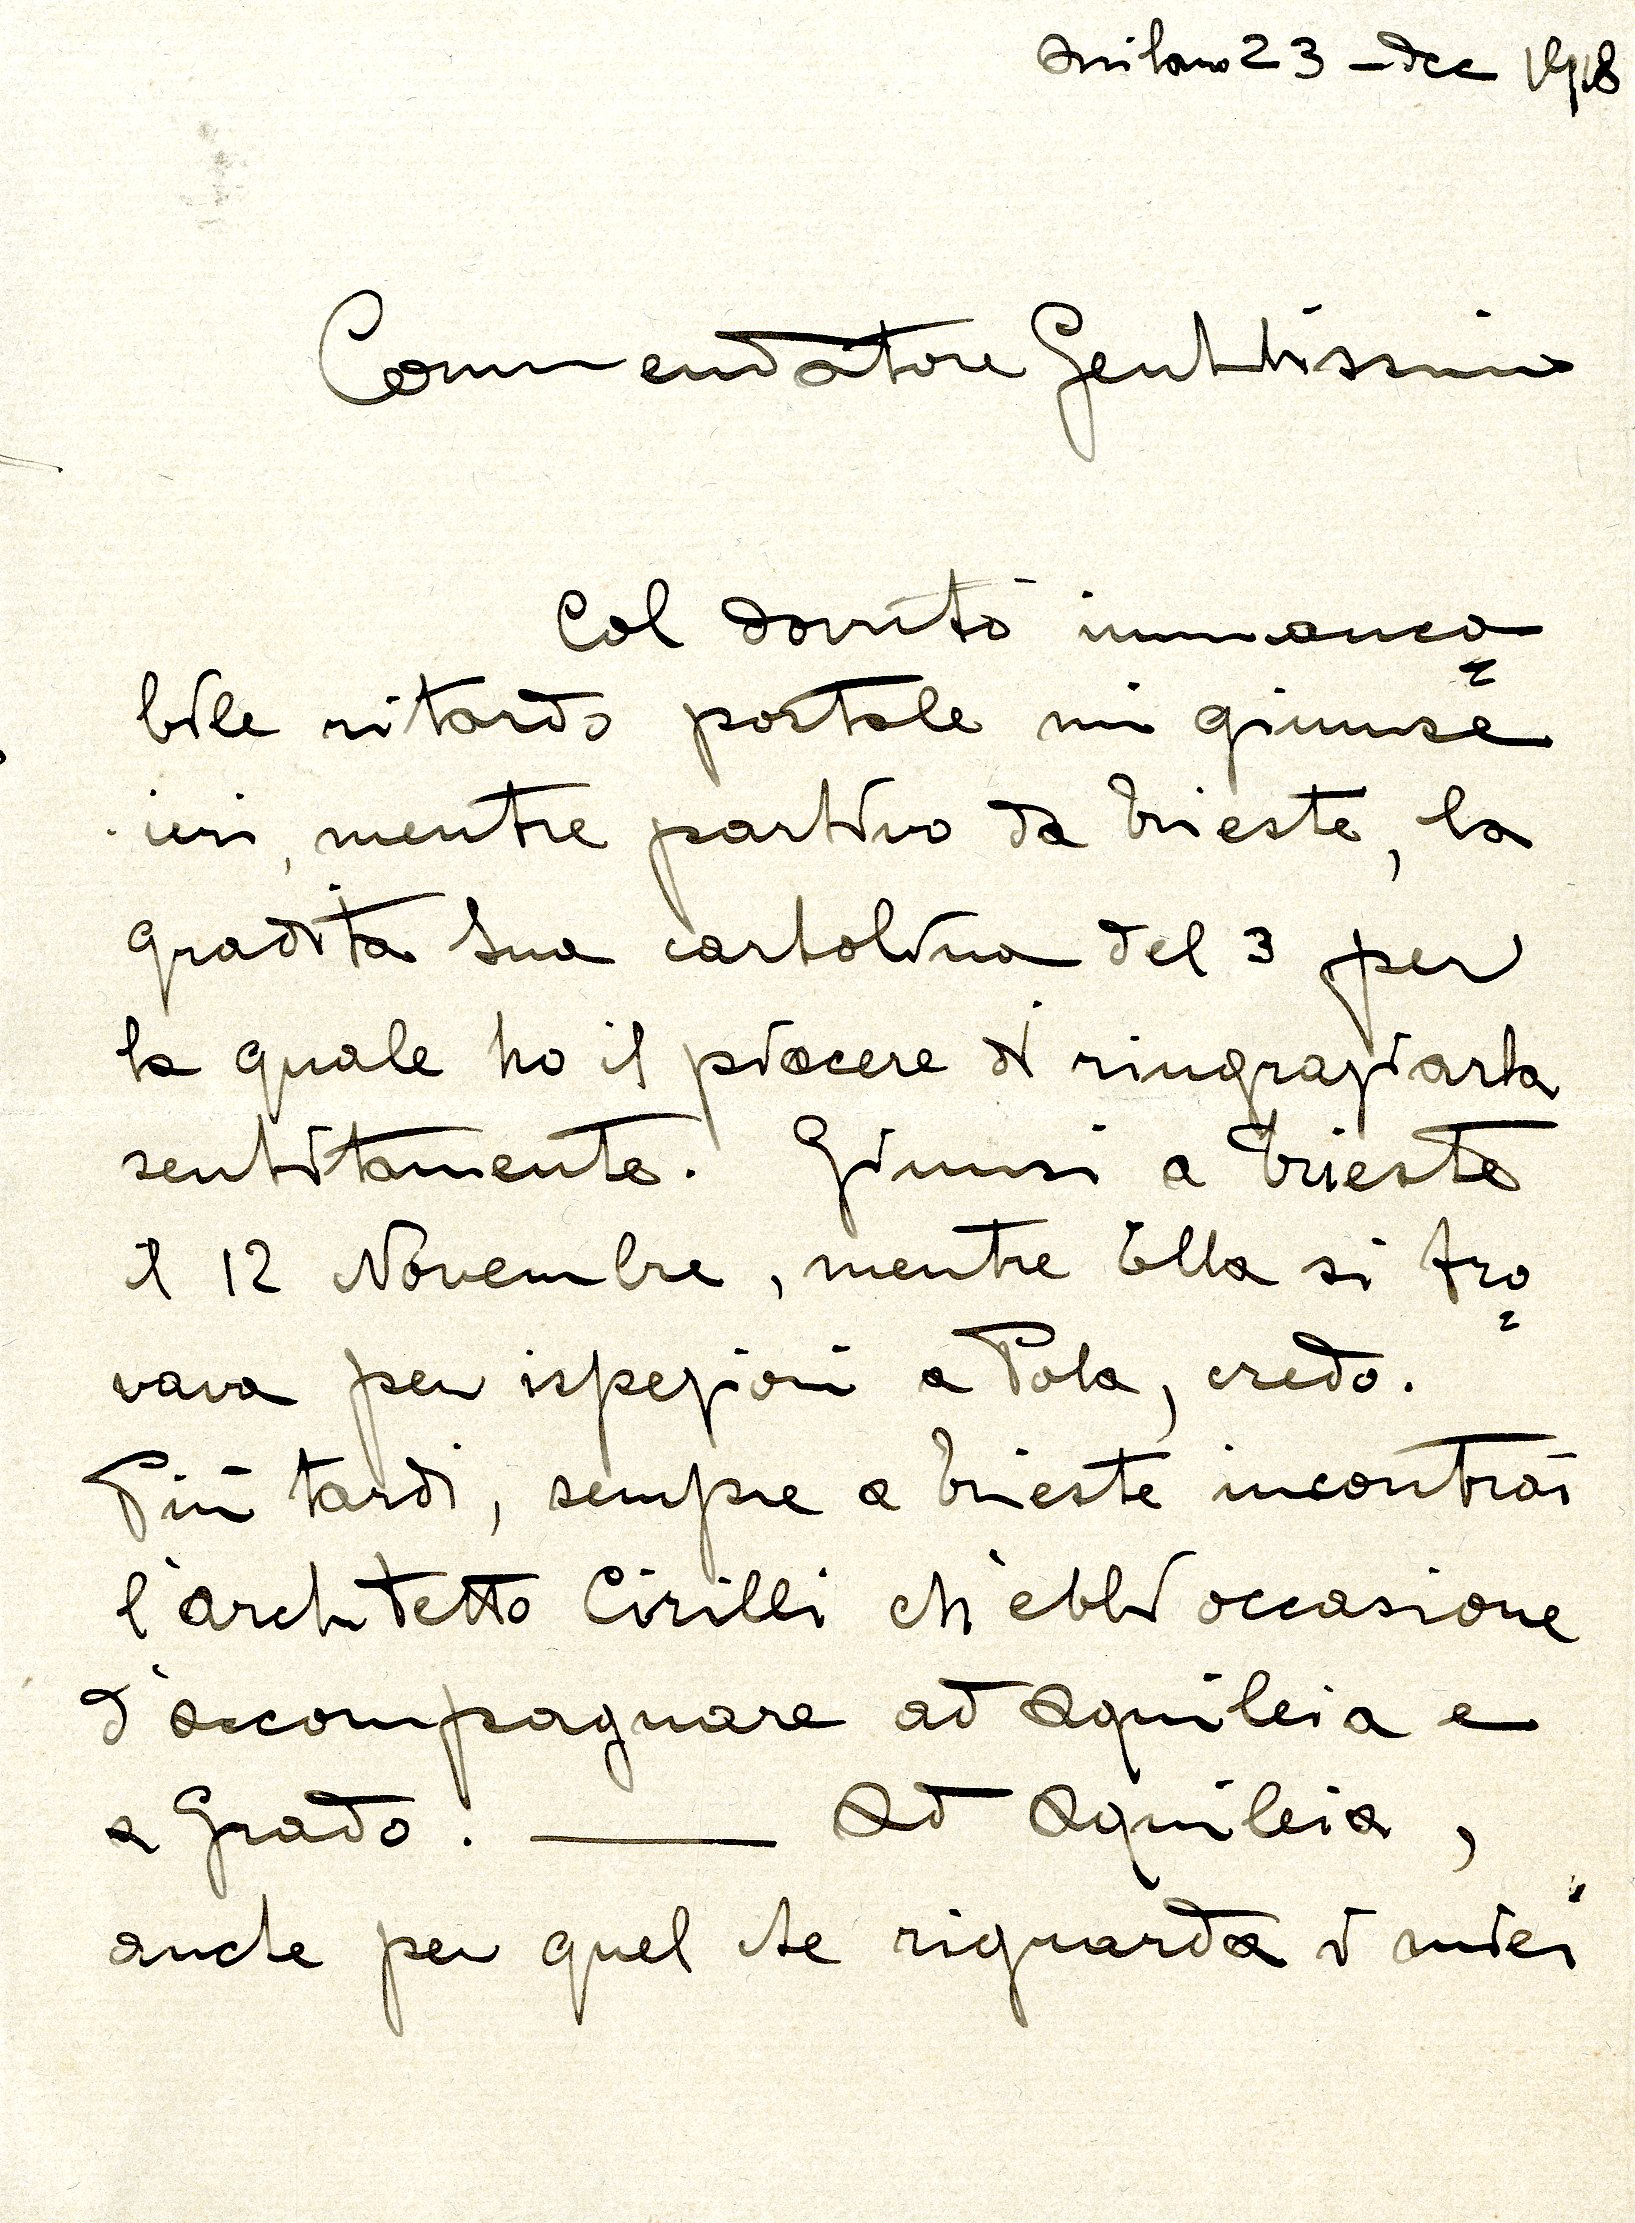 Milano 23 - dec 1918
Commendatore Gentilissimo
Col dovuto immanca=
bile ritardo postale mi giunse
ieri, mentre partivo da Trieste, la
gradita Sua cartolina del 3 per
la quale ho il piacere di ringraziarla
sentitamente. Giunsi a Trieste
il 12 Novembre, mentre Ella si tro=
vava per ispezioni a Pola, credo.
Più tardi, sempre a Trieste incontrai
l'architetto Cirilli ch'ebbi occasione
d'accompagnare ad Aquileia e
a Grado. — Ad Aquileia,
anche per quel che riguarda i miei